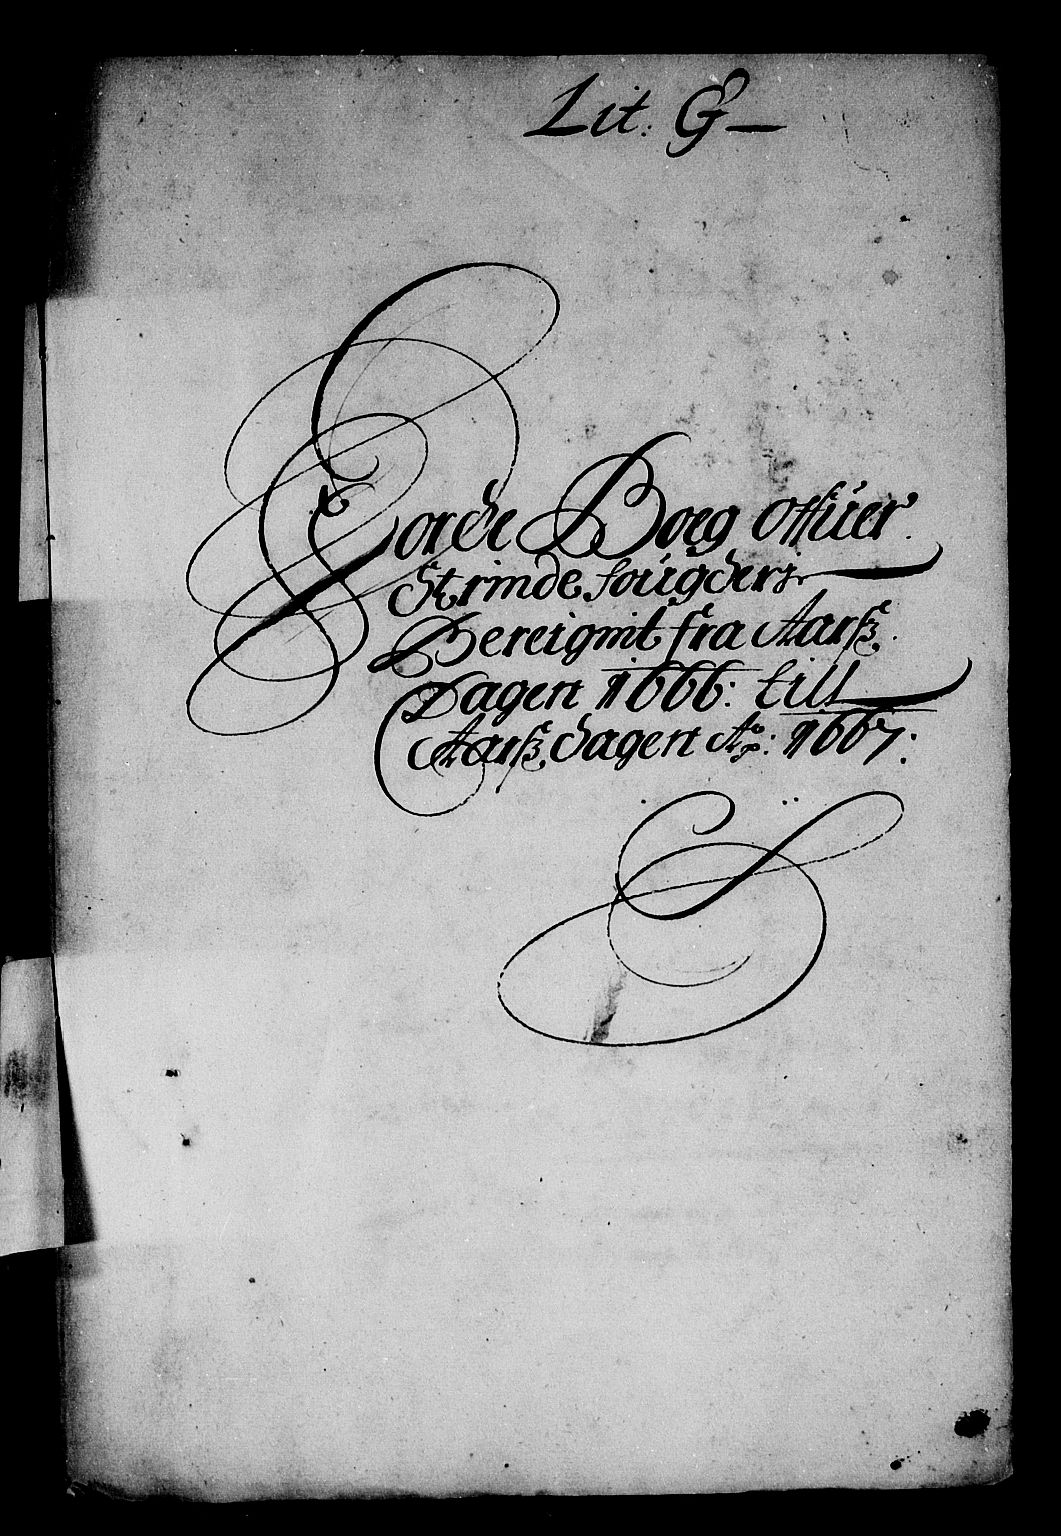 Lit. G
Jorde Boeg offüer
Strinde foügderj
Bereignit fra Aarß
Dagen 1666: till
Aarß dagen Ao: 1667: